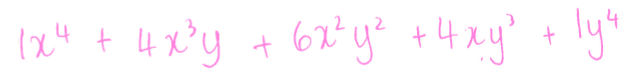 1x⁴ + 4x³y + 6x²y² + 4xy³ + 1y⁴